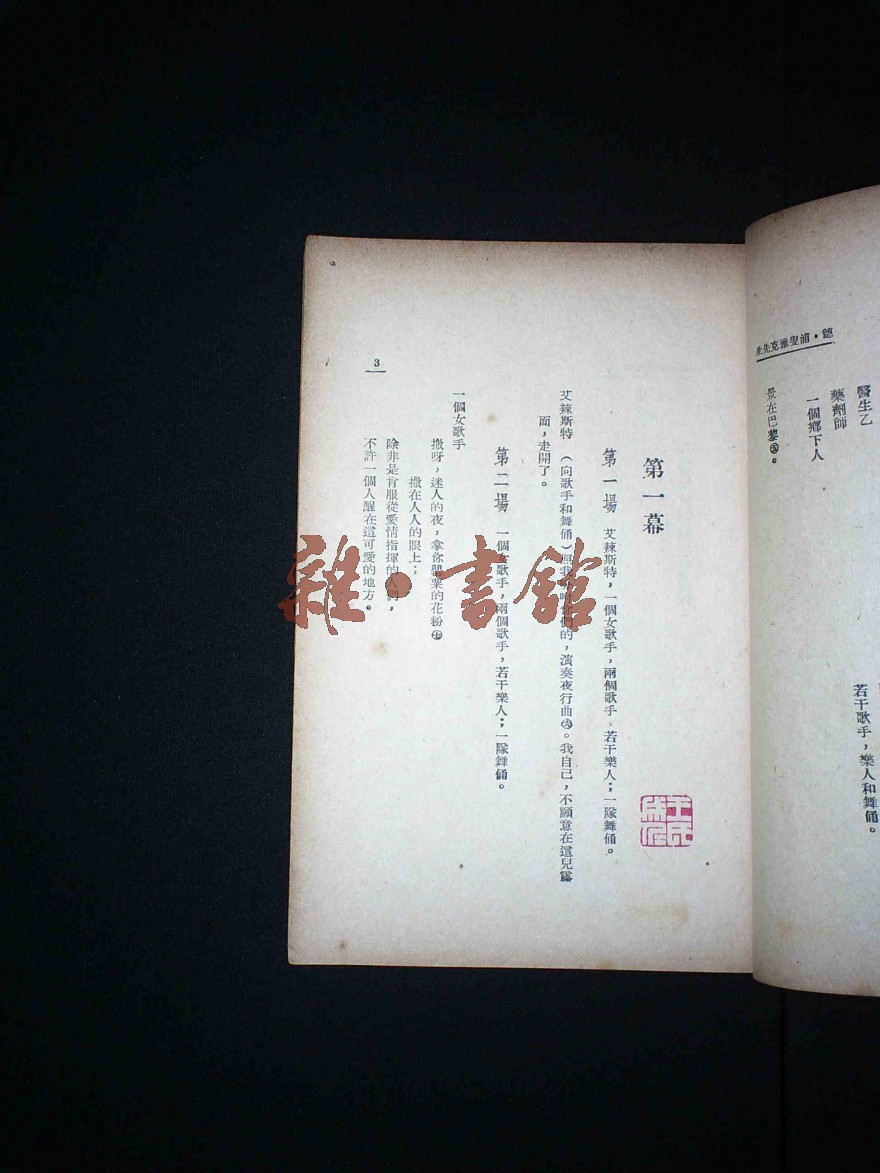 德・浦叟雅克先生
醫生乙
藥劑師
一個鄉下人
若干歌手，樂人和舞俑。
景在巴黎。
第一幕
第一場　艾辣斯特，一個女歌手，兩個歌手，若干樂人；一隊舞俑。
艾辣斯特　（向歌手和舞俑）照我們的，演奏夜行曲。我自己，不願意在這兒露
面，走開了。
第二場　一個女歌手，兩個歌手，若干樂人；一隊舞俑。
一個女歌手
撒呀，迷人的夜，拿你罌粟的花粉
撒在人人的眼上；
除非是肯服從愛情指揮的人們，
不許一個人醒在這可愛的地方。
3
雜・書館